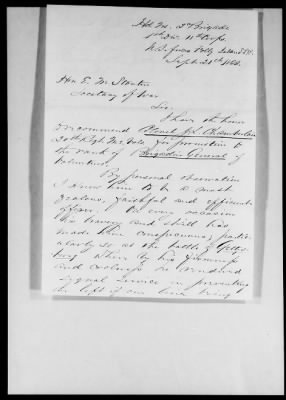 Hd Qrs. 2d Brigade
1st Div. 11th Corps
Folly Island S.C.
Sept 21st 1863.
Hon E. M. Stanton
Secretary of War
Sir.
I have the honor
to recommend Colonel J. L. Chamberlain
20th Regt Me Vols for promotion to
the rank of Brigadier General of
Volunteers.
By personal observation
I know him to be a most
zealous, faithful and efficient
officer. On every occasion
his bravery and skill has
made him conspicuous, partic-
ularly so at the battle of Gettys-
burg where by his firmness
and coolness he rendered
signal service in preventing
the left of our line being